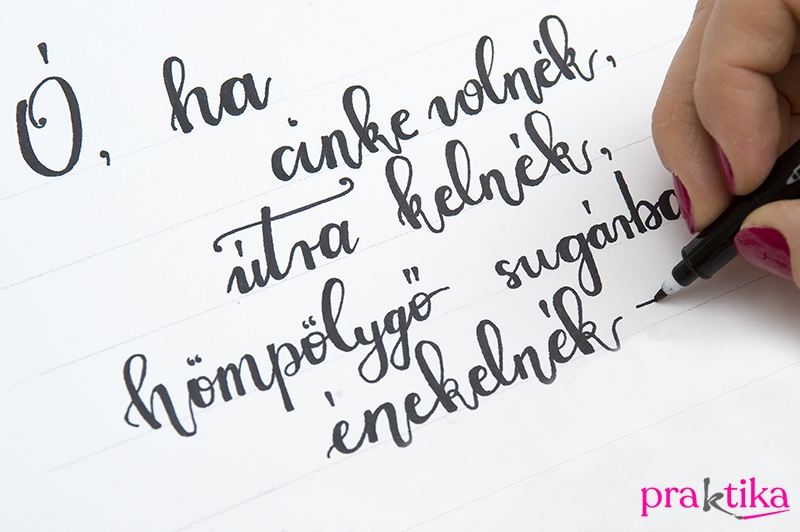 Ó, ha
cinke volnék,
útra kelnék,
hömpölygő sugárba
énekelnék –
praktika